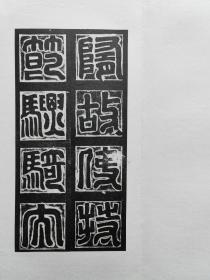 隋故使持
節驃騎大